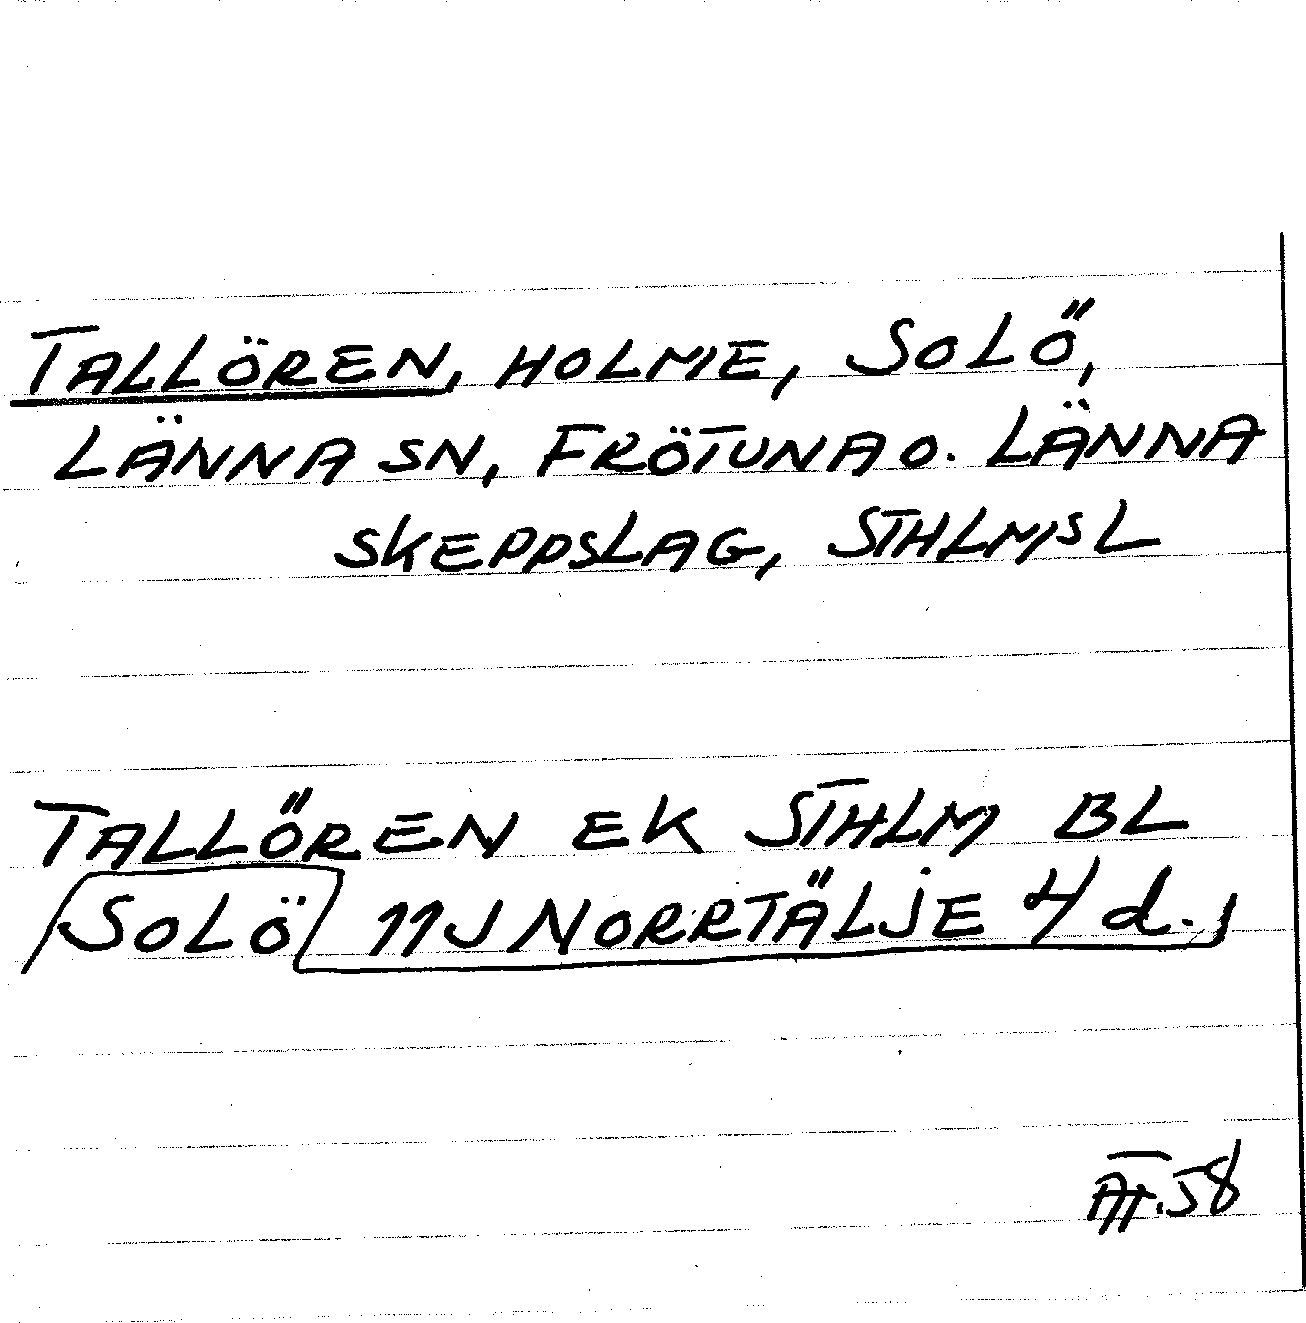 TALLÖREN, HOLME, SOLÖ,
LÄNNA SN, FRÖTUNA O. LÄNNA
SKEPPSLAG, STHLMS L
TALLÖREN EK STHLM BL
SOLÖ 11J NORRTÄLJE 4 d.
AT.58